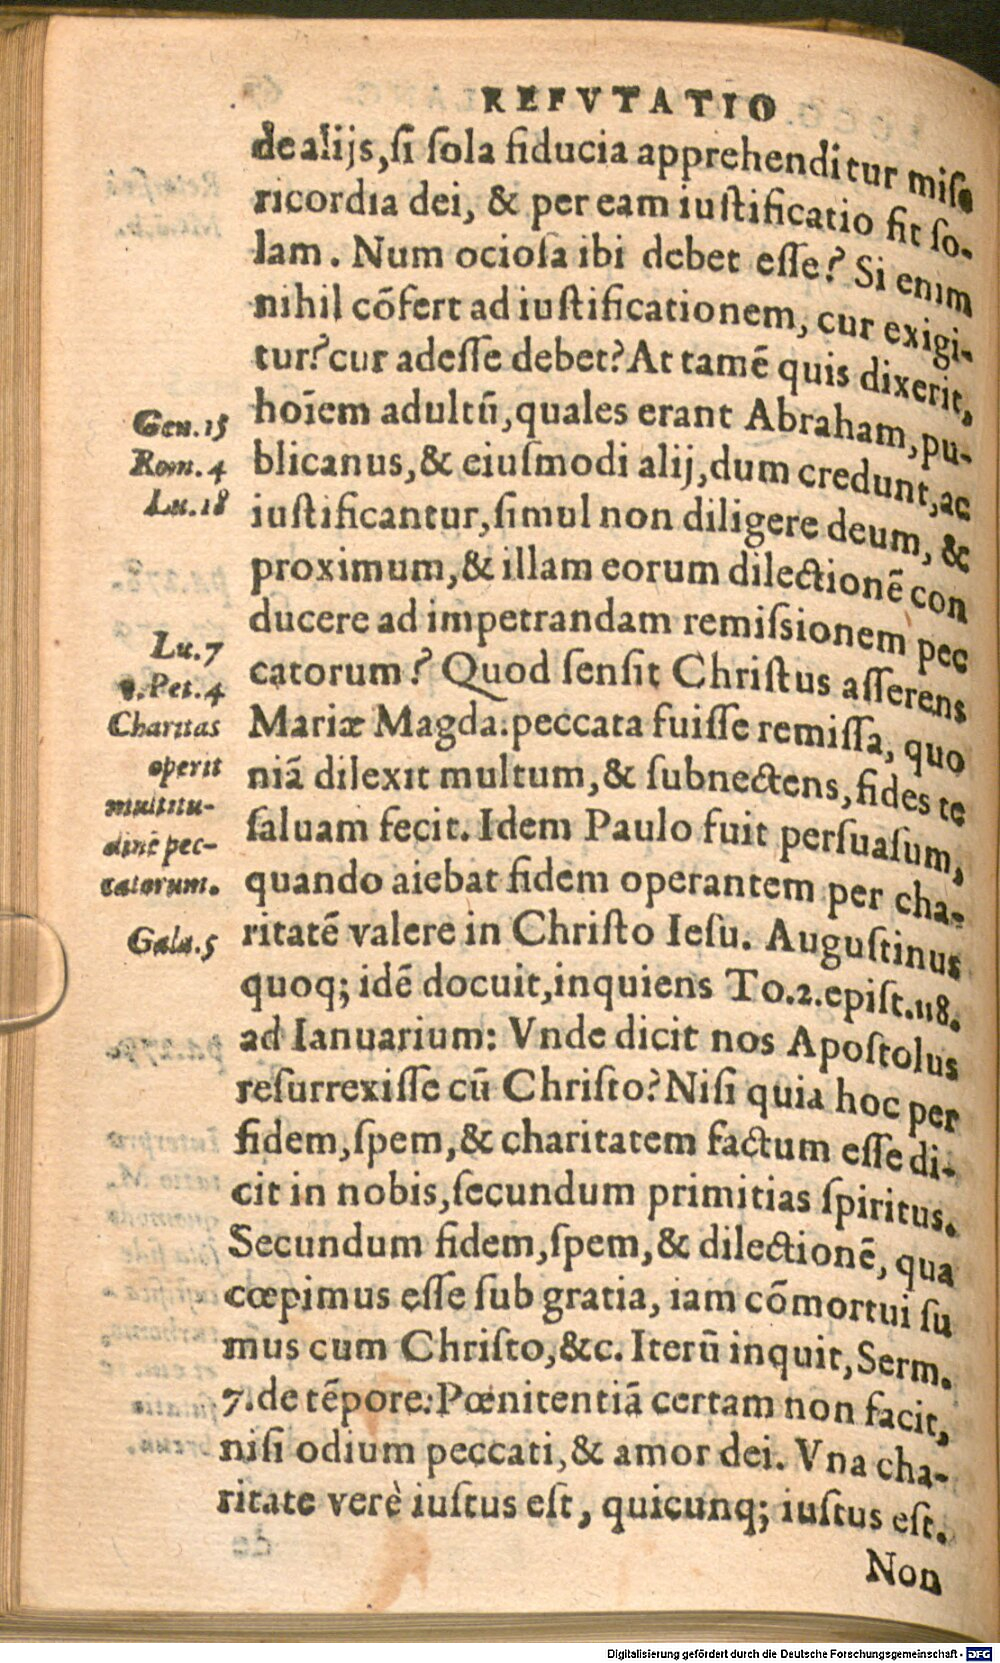 REFVTATIO
de alijs, ſi ſola fiducia apprehenditur miſe
ricordia dei, & per eam iuſtificatio fit ſo-
lam. Num ocioſa ibi debet eſſe? Si enim
nihil cõfert ad iuſtificationem, cur exigi-
tur? cur adeſſe debet? At tamẽ quis dixerit,
hoĩem adultũ, quales erant Abraham, pu-
blicanus, & eiuſmodi alij, dum credunt, ac
iuſtificantur, ſimul non diligere deum, &
proximum, & illam eorum dilectionẽ con
ducere ad impetrandam remiſsionem pec
catorum? Quod ſenſit Chriſtus aſſerens
Mariæ Magda: peccata fuiſſe remiſſa, quo
niã dilexit multum, & ſubnectens, fides te
ſaluam fecit. Idem Paulo fuit perſuaſum,
quando aiebat fidem operantem per cha-
ritatẽ valere in Chriſto Ieſu. Auguſtinus
quoq; idẽ docuit, inquiens To.2. epiſt.118.
ad Ianuarium: Vnde dicit nos Apoſtolus
reſurrexiſſe cũ Chriſto? Niſi quia hoc per
fidem, ſpem, & charitatem factum eſſe di-
cit in nobis, ſecundum primitias ſpiritus.
Secundum fidem, ſpem, & dilectionẽ, qua
cœpimus eſſe ſub gratia, iam cõmortui ſu
mus cum Chriſto, &c. Iterũ inquit, Serm.
7. de tẽpore: Pœnitentiã certam non facit,
niſi odium peccati, & amor dei. Vna cha-
ritate verè iuſtus eſt, quicunq; iuſtus eſt.
Non
Gen.15
Rom.4
Lu.18
Lu.7
1.Pet.4
Charitas
operit
multitu-
dinẽ pec-
catorum.
Gala.5
Digitalisierung gefördert durch die Deutsche Forschungsgemeinschaft - DFG